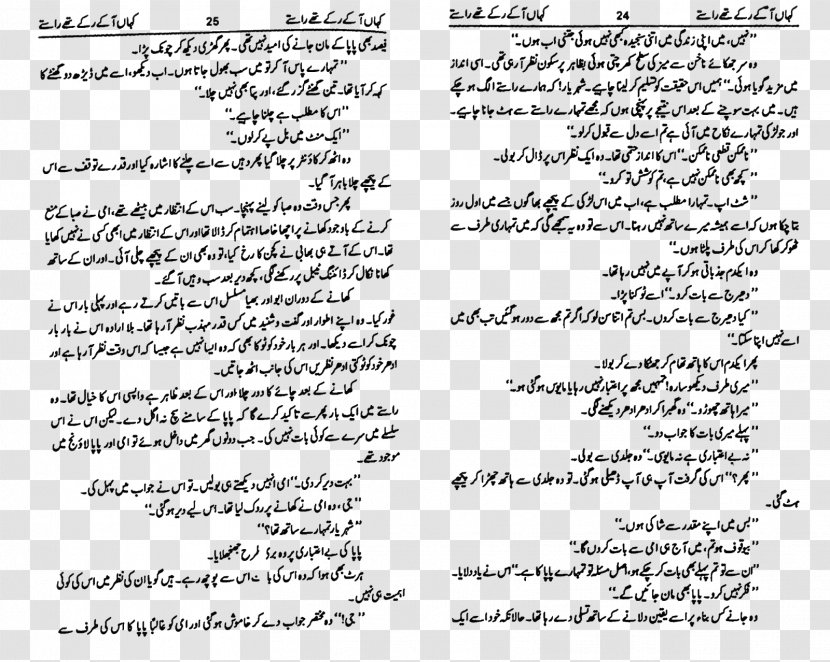 کہاں آ کے رکے تھے راستے 24 کہاں آ کے رکے تھے راستے
’’نہیں، میں اپنی زندگی میں اتنی سنجیدہ کبھی نہیں ہوئی جتنی اب ہوں۔‘‘
وہ سر جھکائے ناخن سے میز کی سطح کھرچتی ہوئی بظاہر پرسکون نظر آ رہی تھی۔ اسی انداز
میں مزید گویا ہوئی۔ ’’ہمیں اس حقیقت کو تسلیم کر لینا چاہیے۔ شہریار! کہ ہمارے راستے الگ ہو چکے
ہیں۔ میں بہت سوچنے کے بعد اس نتیجے پر پہنچی ہوں کہ مجھے تمہارے راستے سے ہٹ جانا چاہیے۔
اور جو لڑکی تمہارے نکاح میں آئی ہے تم اسے دل سے قبول کر لو۔‘‘
’’ناممکن قطعی ناممکن۔‘‘ اس کا انداز حتمی تھا۔ وہ ایک نظر اس پر ڈال کر بولی۔
’’کچھ بھی ناممکن نہیں ہے، تم کوشش تو کرو۔‘‘
’’شٹ اپ۔ تمہارا مطلب ہے، اب میں اس لڑکی کے پیچھے بھاگوں جسے میں اول روز
بتا چکا ہوں کہ اسے ہمیشہ میرے ساتھ نہیں رہنا۔ اس سے تو وہ یہ سمجھے گی کہ میں تمہاری طرف سے
ٹھوکر کھا کر اس کی طرف پلٹا ہوں۔‘‘
وہ ایکدم جذباتی ہو کر آپے میں نہیں رہا تھا۔
’’دھیرج سے بات کرو۔‘‘ اسے ٹوکنا پڑا۔
’’کیا دھیرج سے بات کروں۔ بس تم اتنا سن لو کہ اگر تم مجھ سے دور ہو گئیں تب بھی میں
اسے نہیں اپنا سکتا۔‘‘
پھر ایکدم اس کا ہاتھ تھام کر جھٹکا دے کر بولا۔
’’میری طرف دیکھو سارہ! تمہیں مجھ پر اعتبار نہیں رہا یا مایوس ہو گئی ہو۔‘‘
’’میرا ہاتھ چھوڑو۔‘‘ وہ گھبرا کر ادھر ادھر دیکھنے لگی۔
’’پہلے میری بات کا جواب دو۔‘‘
’’نہ بے اعتباری ہے نہ مایوسی۔‘‘ وہ جلدی سے بولی۔
’’پھر؟‘‘ اس کی گرفت آپ ہی آپ ڈھیلی ہو گئی۔ تو وہ جلدی سے ہاتھ چھڑا کر پیچھے
ہٹ گئی۔
’’بس میں اپنے مقدر سے شاکی ہوں۔‘‘
’’بیوقوف ہو تم، میں آج ہی امی سے بات کروں گا۔‘‘
’’ان سے تو تم پہلے بھی بات کر چکے ہو، اصل مسئلہ تو تمہارے پاپا کا ہے۔‘‘ اس نے یاد دلایا۔
’’فکر نہیں کرو۔ پاپا بھی مان جائیں گے۔‘‘
وہ جانے کس بناء پر اسے یقین دلانے کے ساتھ تسلی دے رہا تھا۔ حالانکہ خود اسے ایک
کہاں آ کے رکے تھے راستے 25 کہاں آ کے رکے تھے راستے
فیصد بھی پاپا کے مان جانے کی امید نہیں تھی۔ پھر گھڑی دیکھ کر چونک پڑا۔
’’تمہارے پاس آ کر تو میں سب بھول جاتا ہوں۔ اب دیکھو، اسے میں ڈیڑھ دو گھنٹے کا
کہہ کر آیا تھا۔ تین گھنٹے گزر گئے، اور پتا بھی نہیں چلا۔‘‘
’’اس کا مطلب ہے چلنا چاہیے۔‘‘
’’ایک منٹ میں بل پے کر لوں۔‘‘
وہ اٹھ کر کاؤنٹر پر چلا گیا پھر وہیں سے اسے چلنے کا اشارہ کیا اور قدرے توقف سے اس
کے پیچھے چلا باہر آ گیا۔
پھر جس وقت وہ صبا کو لینے پہنچا۔ سب اس کے انتظار میں بیٹھے تھے، امی نے صبا کے منع
کرنے کے باوجود کھانے پر اچھا خاصا اہتمام کر ڈالا تھا اور اس کے انتظار میں ابھی کسی نے نہیں کھایا
تھا۔ اس کے آتے ہی بھابی نے کچن کا رخ کیا، تو وہ بھی ان کے پیچھے چلی آئی۔ اور ان کے ساتھ
کھانا نکال کر ڈائننگ ٹیبل پر رکھنے لگی، کچھ دیر بعد سب وہیں آ گئے۔
کھانے کے دوران ابو اور بھیا مسلسل اس سے باتیں کرتے رہے اور پہلی بار اس نے
غور کیا۔ وہ اپنے اطوار اور گفت و شنید میں کس قدر مہذب نظر آ رہا تھا۔ بلا ارادہ اس نے بار بار
چونک کر اسے دیکھا۔ اور ہر بار خود کو ٹوکا بھی کہ وہ ایسا نہیں ہے جیسا کہ اس وقت نظر آ رہا ہے اور
ادھر خود کو ٹوکتی ادھر نظریں اس کی جانب اٹھ جاتیں۔
کھانے کے بعد چائے کا دور چلا اور اس کے بعد ظاہر ہے واپسی اس کا خیال تھا۔ وہ
راستے میں ایک بار پھر سے تاکید کرے گا کہ پاپا کے سامنے سچ نہ اگل دے۔ لیکن اس نے اس
سلسلے میں سرے سے کوئی بات نہیں کی۔ جب دونوں گھر میں داخل ہوئے تو امی اور پاپا لاؤنج میں
موجود تھے۔
’’بہت دیر کر دی۔‘‘ امی انہیں دیکھتے ہی بولیں۔ تو اس نے جواب میں پہل کی۔
’’جی، وہ امی نے کھانے پر روک لیا تھا۔ اس لیے دیر ہو گئی۔‘‘
’’شہریار تمہارے ساتھ تھا؟‘‘
پاپا کی بے اعتباری پر وہ طرح جھنجھلایا۔
ہرٹ بھی ہوا کہ وہ اس کی اس سے پوچھ رہے۔ ہیں گویا ان کی نظر میں اس کی کوئی
اہمیت ہی نہیں۔
’’جی!‘‘ وہ مختصر جواب دے کر خاموش ہو گئی اور امی کو غالباً پاپا کا اس کی طرف سے